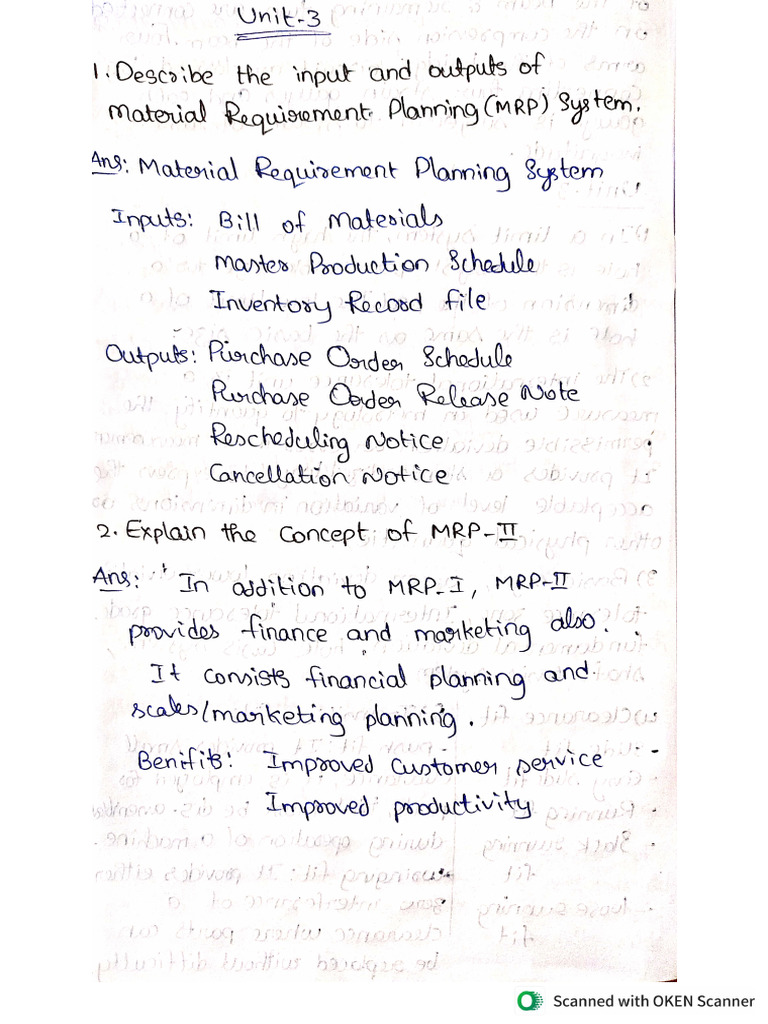 Unit-3
1. Describe the input and outputs of
Material Requirement Planning (MRP) System.
Ans: Material Requirement Planning System
Inputs: Bill of Materials
Master Production Schedule
Inventory Record file
Outputs: Purchase Order Schedule
Purchase Order Release Note
Rescheduling Notice
Cancellation Notice
2. Explain the concept of MRP-II
Ans: In addition to MRP-I, MRP-II
provides finance and marketing also.
It consists financial planning and
scales/marketing planning.
Benifits: Improved customer service
Improved productivity
Scanned with OKEN Scanner